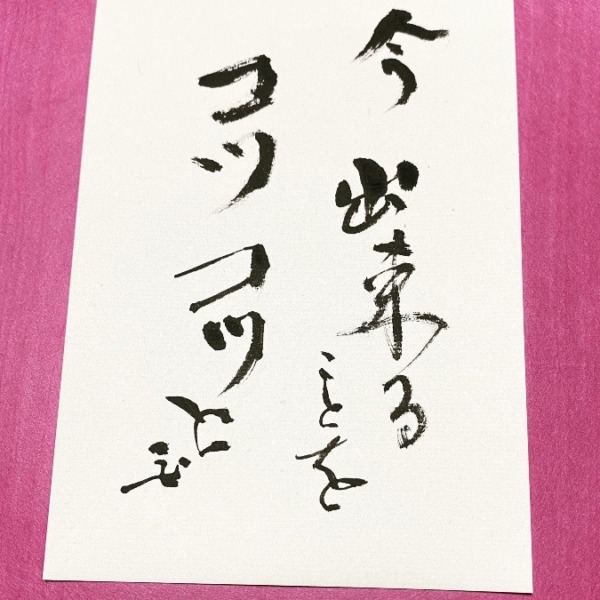 今出来ることを
コツコツと